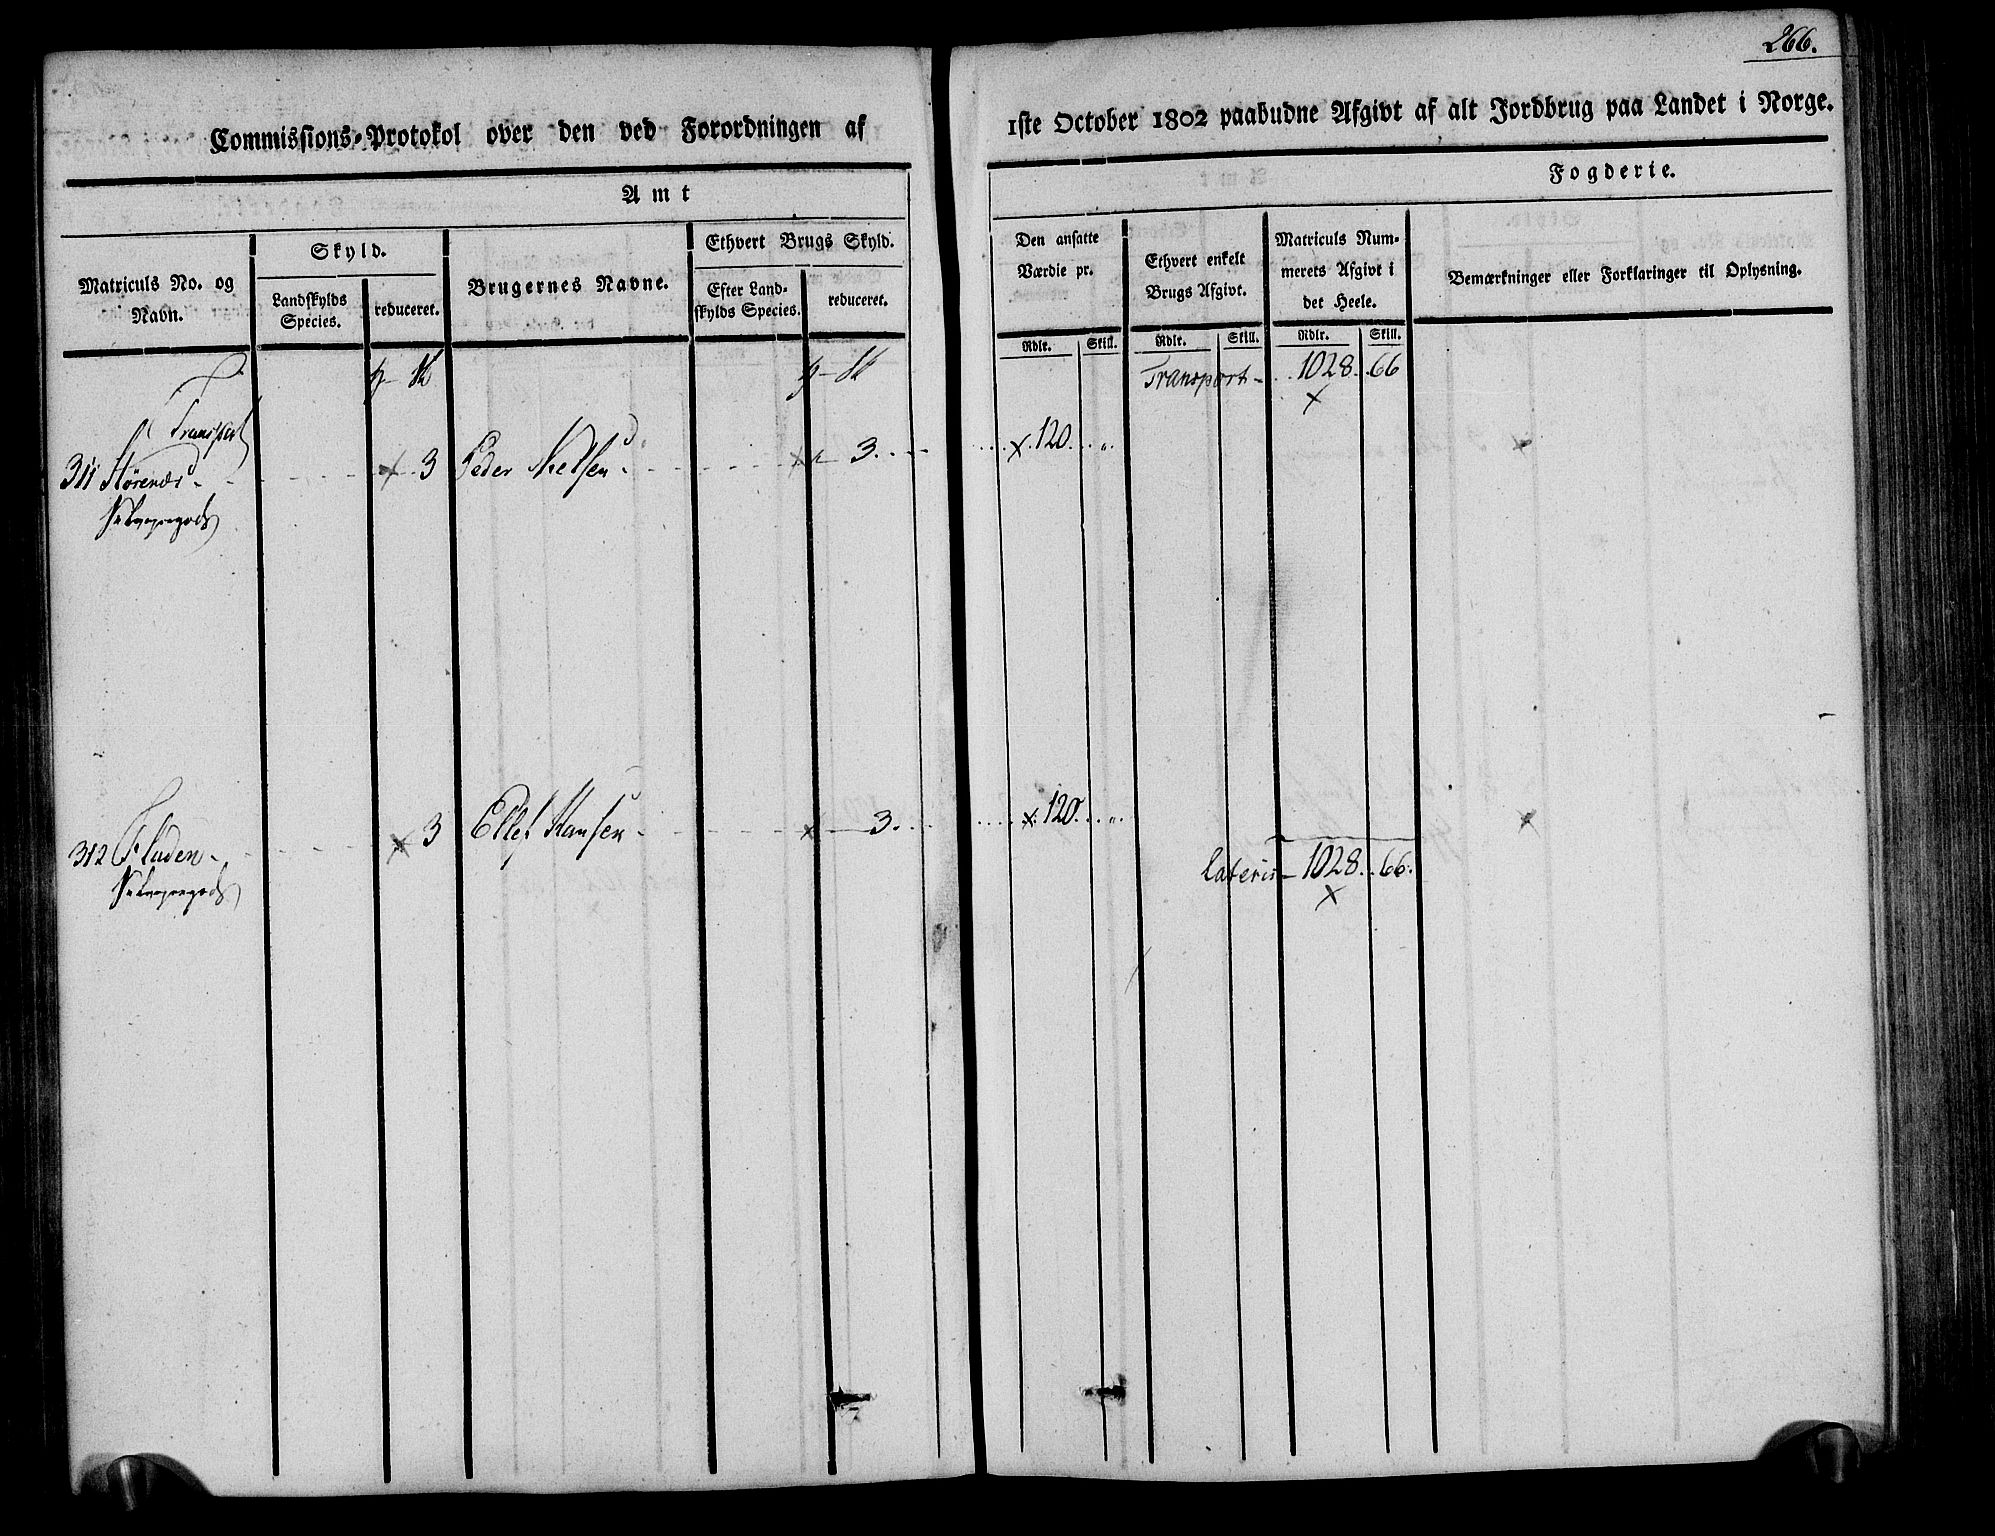 266.
Commissions-Protokol over den ved Forordningen af 1ste October 1802 paabudne Afgivt af alt Jordbrug paa Landet i Norge.
Amt Fogderie.
Matriculs No. og Navn.
Skyld.
Landskylds Species.
reduceret.
Brugernes Navne.
Ethvert Brugs Skyld.
Efter Landskylds Species.
reduceret.
Den ansatte Værdie pr.
Rdlr. Skill.
Ethvert enkelt Brugs Afgivt.
Rdlr. Skill.
Matriculs Nummerets Afgivt i det Heele.
Rdlr. Skill.
Bemærkninger eller Forklaringer til Oplysning.
Transport - 1028. 66
Transport
311 3 Peder 3. 120. "
312 Fladen 3 Ellef Hansen 3. 120. "
lateris - 1028. 66.